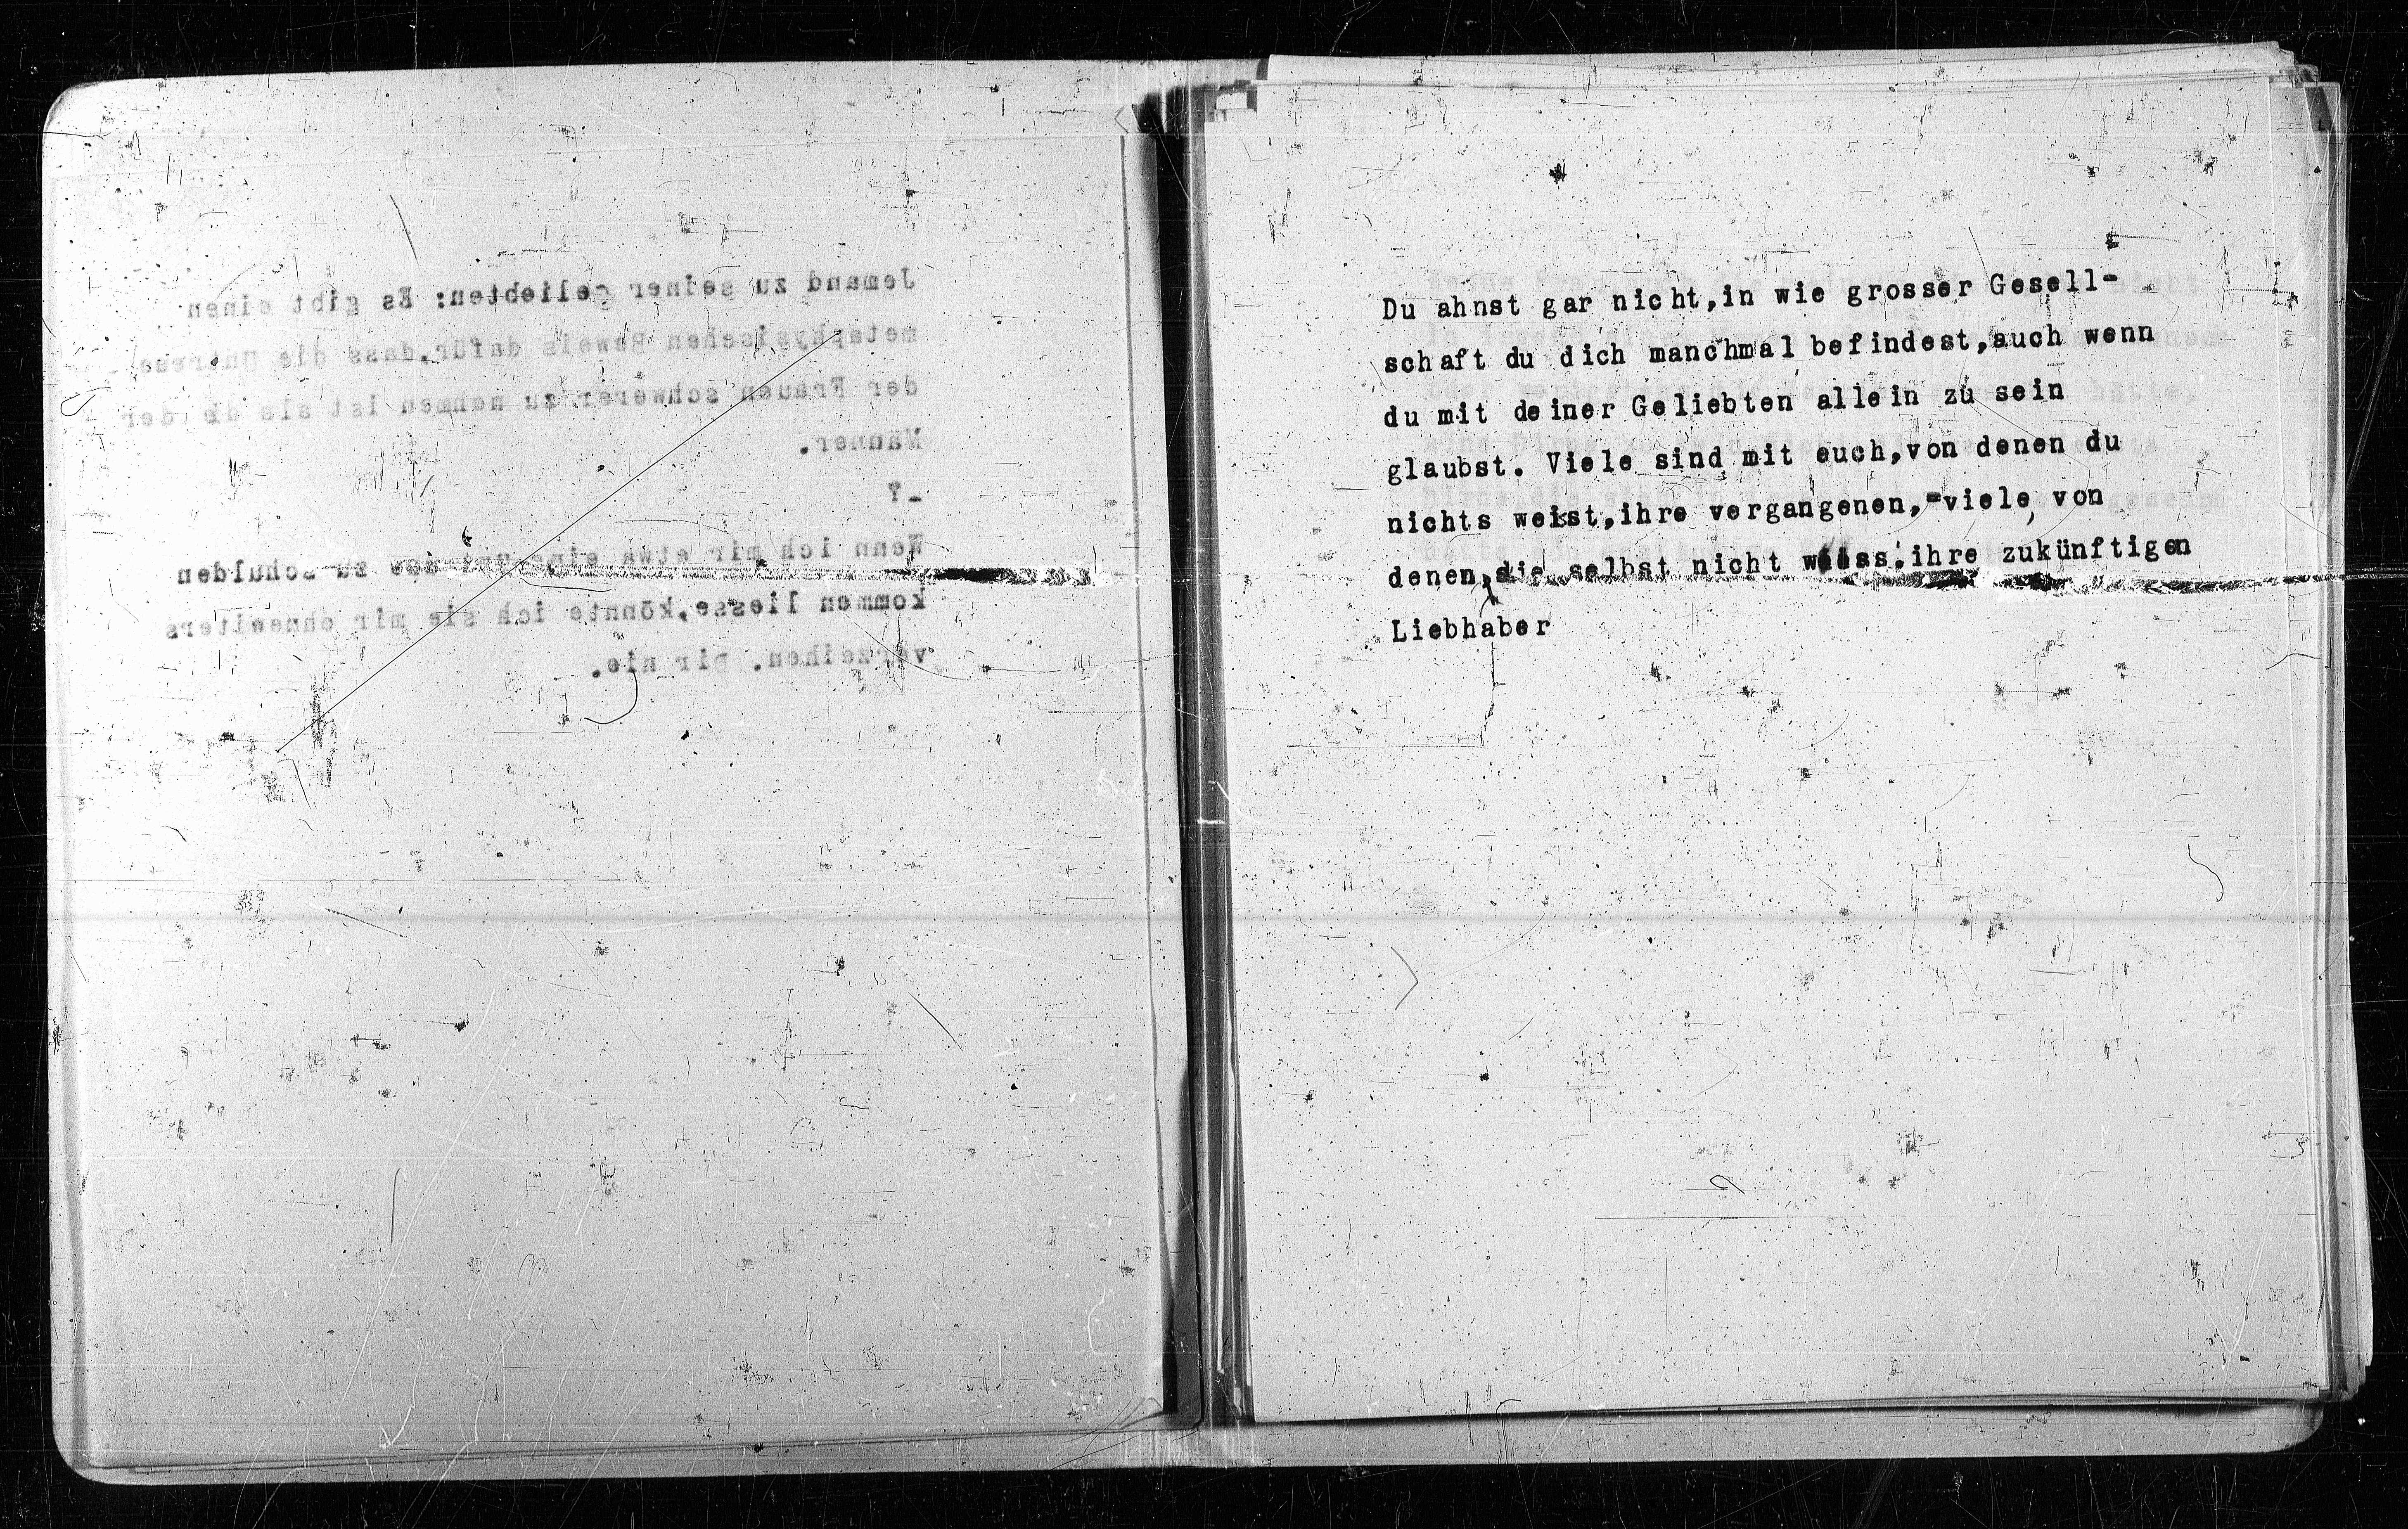 Jemand zu seiner Geliebten: Es gibt einen
metaphysischen Beweis dafür,dass die Untreue
der Frauen schwerer zu nehmen ist als die der
Männer.
-?
Wenn ich mir etwa eine Untreue zu schulden
kommen liesse,könnte ich sie mir ohneweiters
verzeihen. Dir nie.
Du ahnst gar nicht,in wie grosser Gesell-
schaft du dich manchmal befindest,auch wenn
du mit deiner Geliebten allein zu sein
glaubst. Viele sind mit euch,von denen du
nichts weist,ihre vergangenen,-viele, von
denen, sie selbst nicht weiss.ihre zukünftigen
Liebhaber